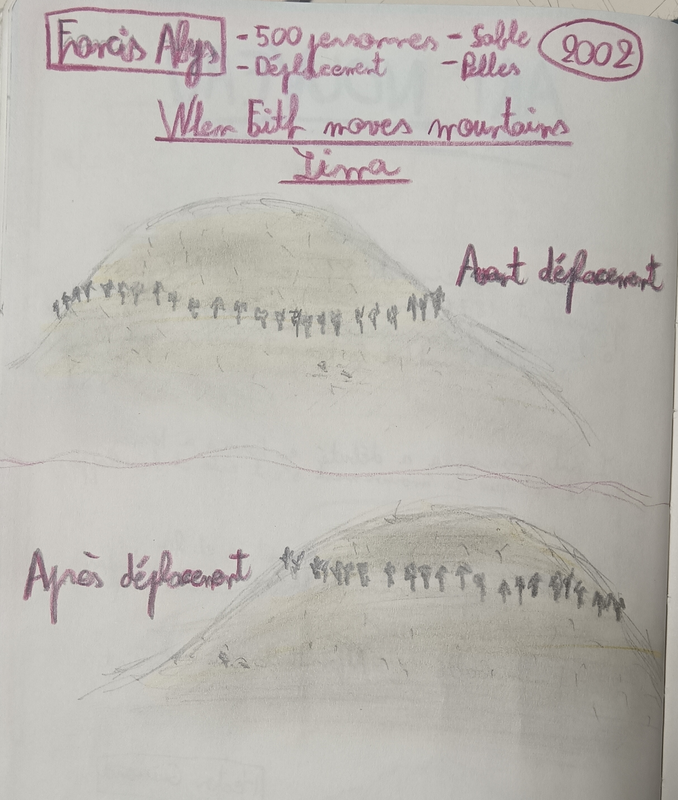 Francis Alys - 500 personnes - Sable 2002
- Déplacement - Pelles
When Faith moves mountains
Lima
Avant déplacement
Après déplacement